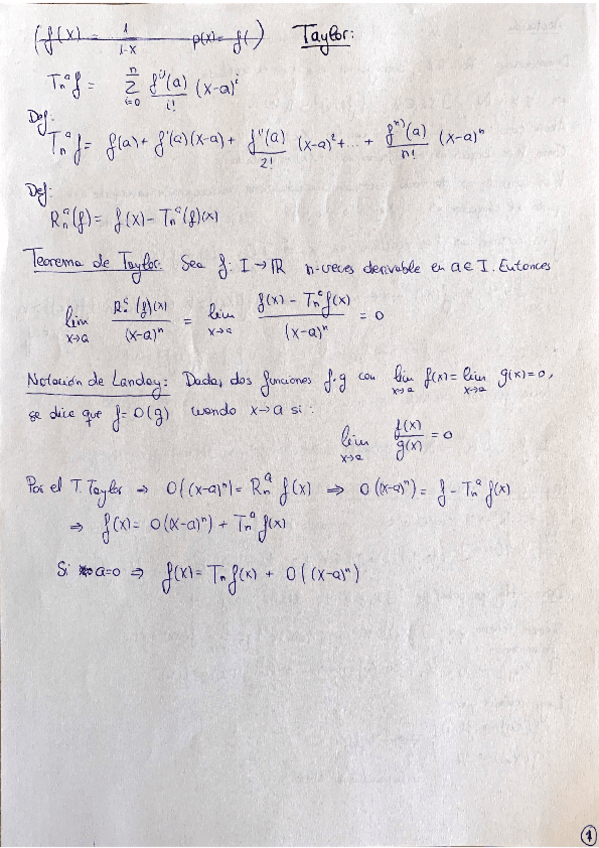 (f(x) = 1/(1-x) p(x)= f( ) Taylor:
Tₙᵃf = ∑ᵢ₌₀ⁿ f⁽ⁱ⁾(a)/i! (x-a)ⁱ
Def:
Tₙᵃf = f(a) + f'(a)(x-a) + f''(a)/2! (x-a)² + ... + fⁿ⁾(a)/n! (x-a)ⁿ
Def:
Rₙᵃ(f) = f(x) - Tₙᵃ(f)(x)
Teorema de Taylor: Sea f: I → ℝ n-veces derivable en a ∈ I. Entonces
lim x→a Rₙᵃ(f)(x)/(x-a)ⁿ = lim x→a f(x) - Tₙᵃf(x)/(x-a)ⁿ = 0
Notación de Landau: Dadas dos funciones f, g con lim x→a f(x) = lim x→a g(x) = 0,
se dice que f = O(g) cuando x→a si:
lim x→a f(x)/g(x) = 0
Por el T. Taylor ⇒ O((x-a)ⁿ) = Rₙᵃ f(x) ⇒ O((x-a)ⁿ) = f - Tₙᵃ f(x)
⇒ f(x) = O(x-a)ⁿ) + Tₙᵃ f(x)
Si a=0 ⇒ f(x) = Tₙ f(x) + O((x-a)ⁿ)
1